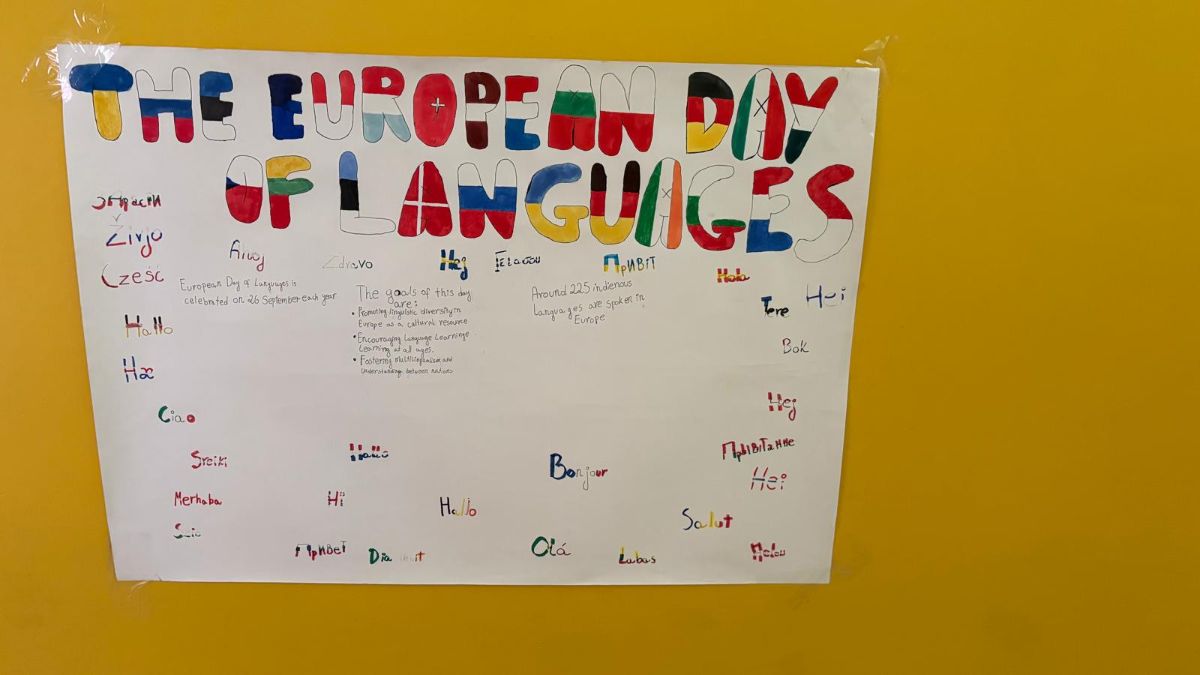 THE EUROPEAN DAY
OF LANGUAGES
Živjo
Cześć
Ahoj
Zdravo
Hej
Привіт
Hola
Tere
Hei
European Day of Languages is
celebrated on 26 September each year
The goals of this day
are:
• Promoting linguistic diversity in
Europe as a cultural resource
• Encouraging Language Learninge
Learning at all ages.
• Fostering multilingualism and
Understanding between nations
Around 225 indigenous
Languages are spoken in
Europe
Hallo
Bok
Hæ
Hej
Ciao
Sveiki
Hallo
Bonjour
Прывітанне
Hei
Merhaba
Hi
Hallo
Salut
Привет
Dia
Olá
Labas